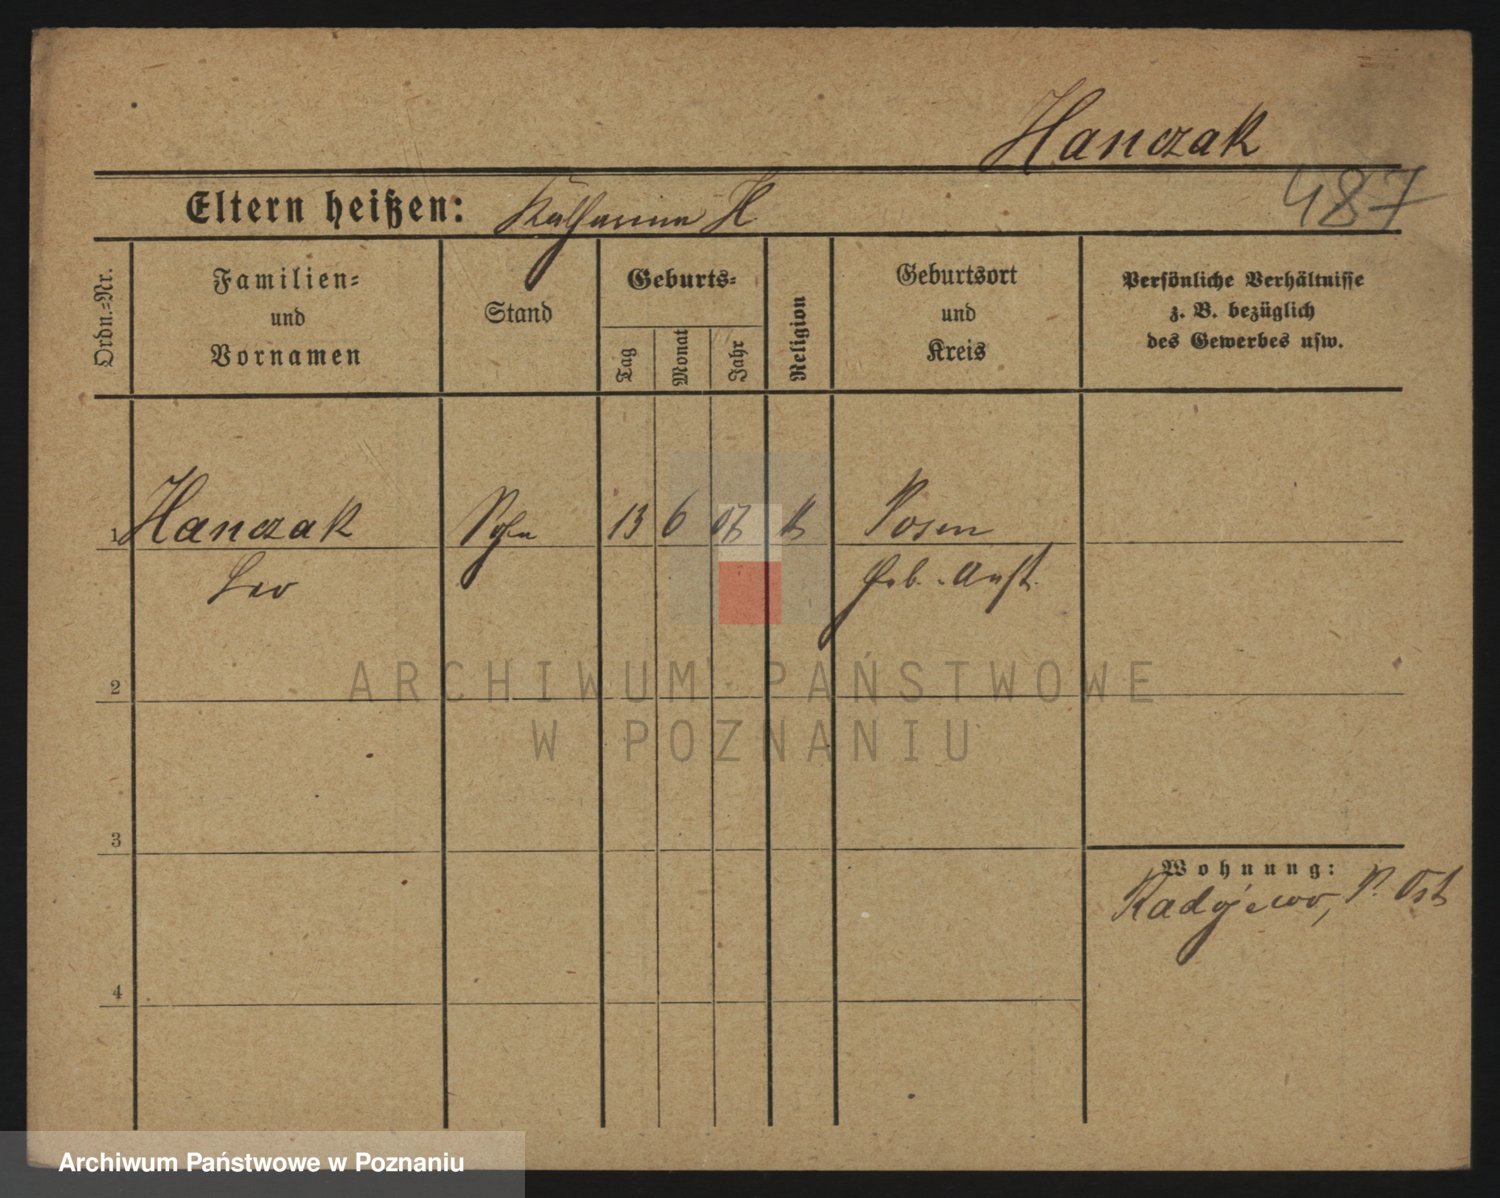 Hanczak
487
Eltern heißen: Katharina H
Ordn.-Nr.
Familien-
und
Vornamen
Stand
Geburts-
Tag
Monat
Jahr
Religion
Geburtsort
und
Kreis
Persönliche Verhältnisse
z. B. bezüglich
des Gewerbes usw.
1 Hanczak Sohn 13 6 07 k Posen
Leo Geb.-Anst.
2
3
4
Wohnung:
Radojewo, P. Ost
ARCHIWUM PAŃSTWOWE
W POZNANIU
Archiwum Państwowe w Poznaniu